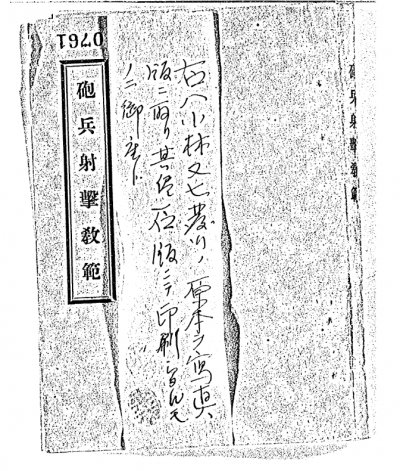 砲兵射擊教範
右ハ小林又七発行ノ原本ヲ写真
版ニ取リ其侭石版ニテ印刷シタルモ
ノニ御座
0761
砲兵射擊教範